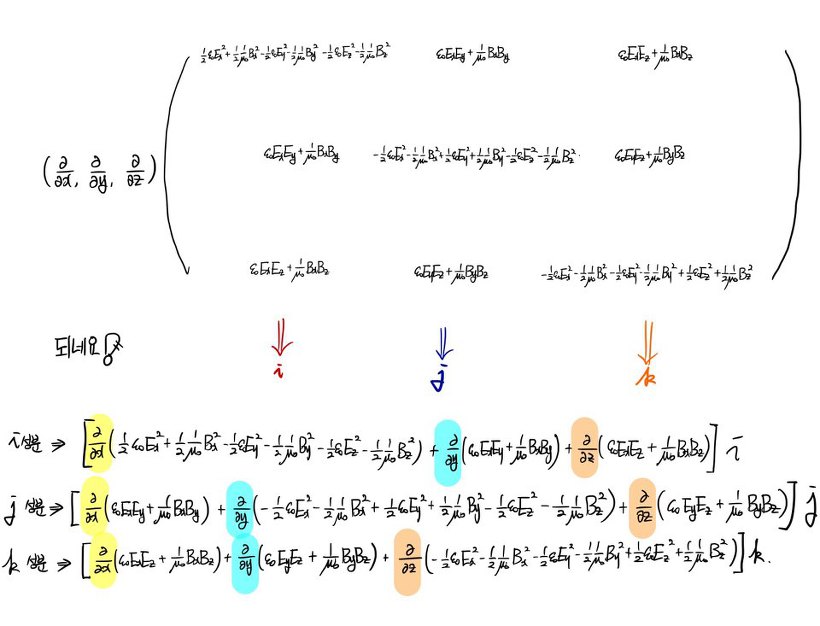 ½ε₀Eₓ²+½1/μ₀Bₓ²-½ε₀Ey²-½1/μ₀By²-½ε₀Ez²-½1/μ₀Bz² ε₀EₓEy+1/μ₀BₓBy ε₀EₓEz+1/μ₀BₓBz
(∂/∂x, ∂/∂y, ∂/∂z) ε₀EₓEy+1/μ₀BₓBy -½ε₀Eₓ²-½1/μ₀Bₓ²+½ε₀Ey²+½1/μ₀By²-½ε₀Ez²-½1/μ₀Bz² ε₀EyEz+1/μ₀ByBz
ε₀EₓEz+1/μ₀BₓBz ε₀EyEz+1/μ₀ByBz -½ε₀Eₓ²-½1/μ₀Bₓ²-½ε₀Ey²-½1/μ₀By²+½ε₀Ez²+½1/μ₀Bz²
되네요
i j k
i 성분 ⇒ [∂/∂x(½ε₀Eₓ²+½1/μ₀Bₓ²-½ε₀Ey²-½1/μ₀By²-½ε₀Ez²-½1/μ₀Bz²)+∂/∂y(ε₀EₓEy+1/μ₀BₓBy)+∂/∂z(ε₀EₓEz+1/μ₀BₓBz)] i
j 성분 ⇒ [∂/∂x(ε₀EₓEy+1/μ₀BₓBy)+∂/∂y(-½ε₀Eₓ²-½1/μ₀Bₓ²+½ε₀Ey²+½1/μ₀By²-½ε₀Ez²-½1/μ₀Bz²)+∂/∂z(ε₀EyEz+1/μ₀ByBz)] j
k 성분 ⇒ [∂/∂x(ε₀EₓEz+1/μ₀BₓBz)+∂/∂y(ε₀EyEz+1/μ₀ByBz)+∂/∂z(-½ε₀Eₓ²-½1/μ₀Bₓ²-½ε₀Ey²-½1/μ₀By²+½ε₀Ez²+½1/μ₀Bz²)] k.